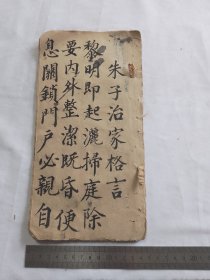 朱子治家格言
黎明即起灑掃庭除
要内外整潔既昏便
息關鎖門户必親自